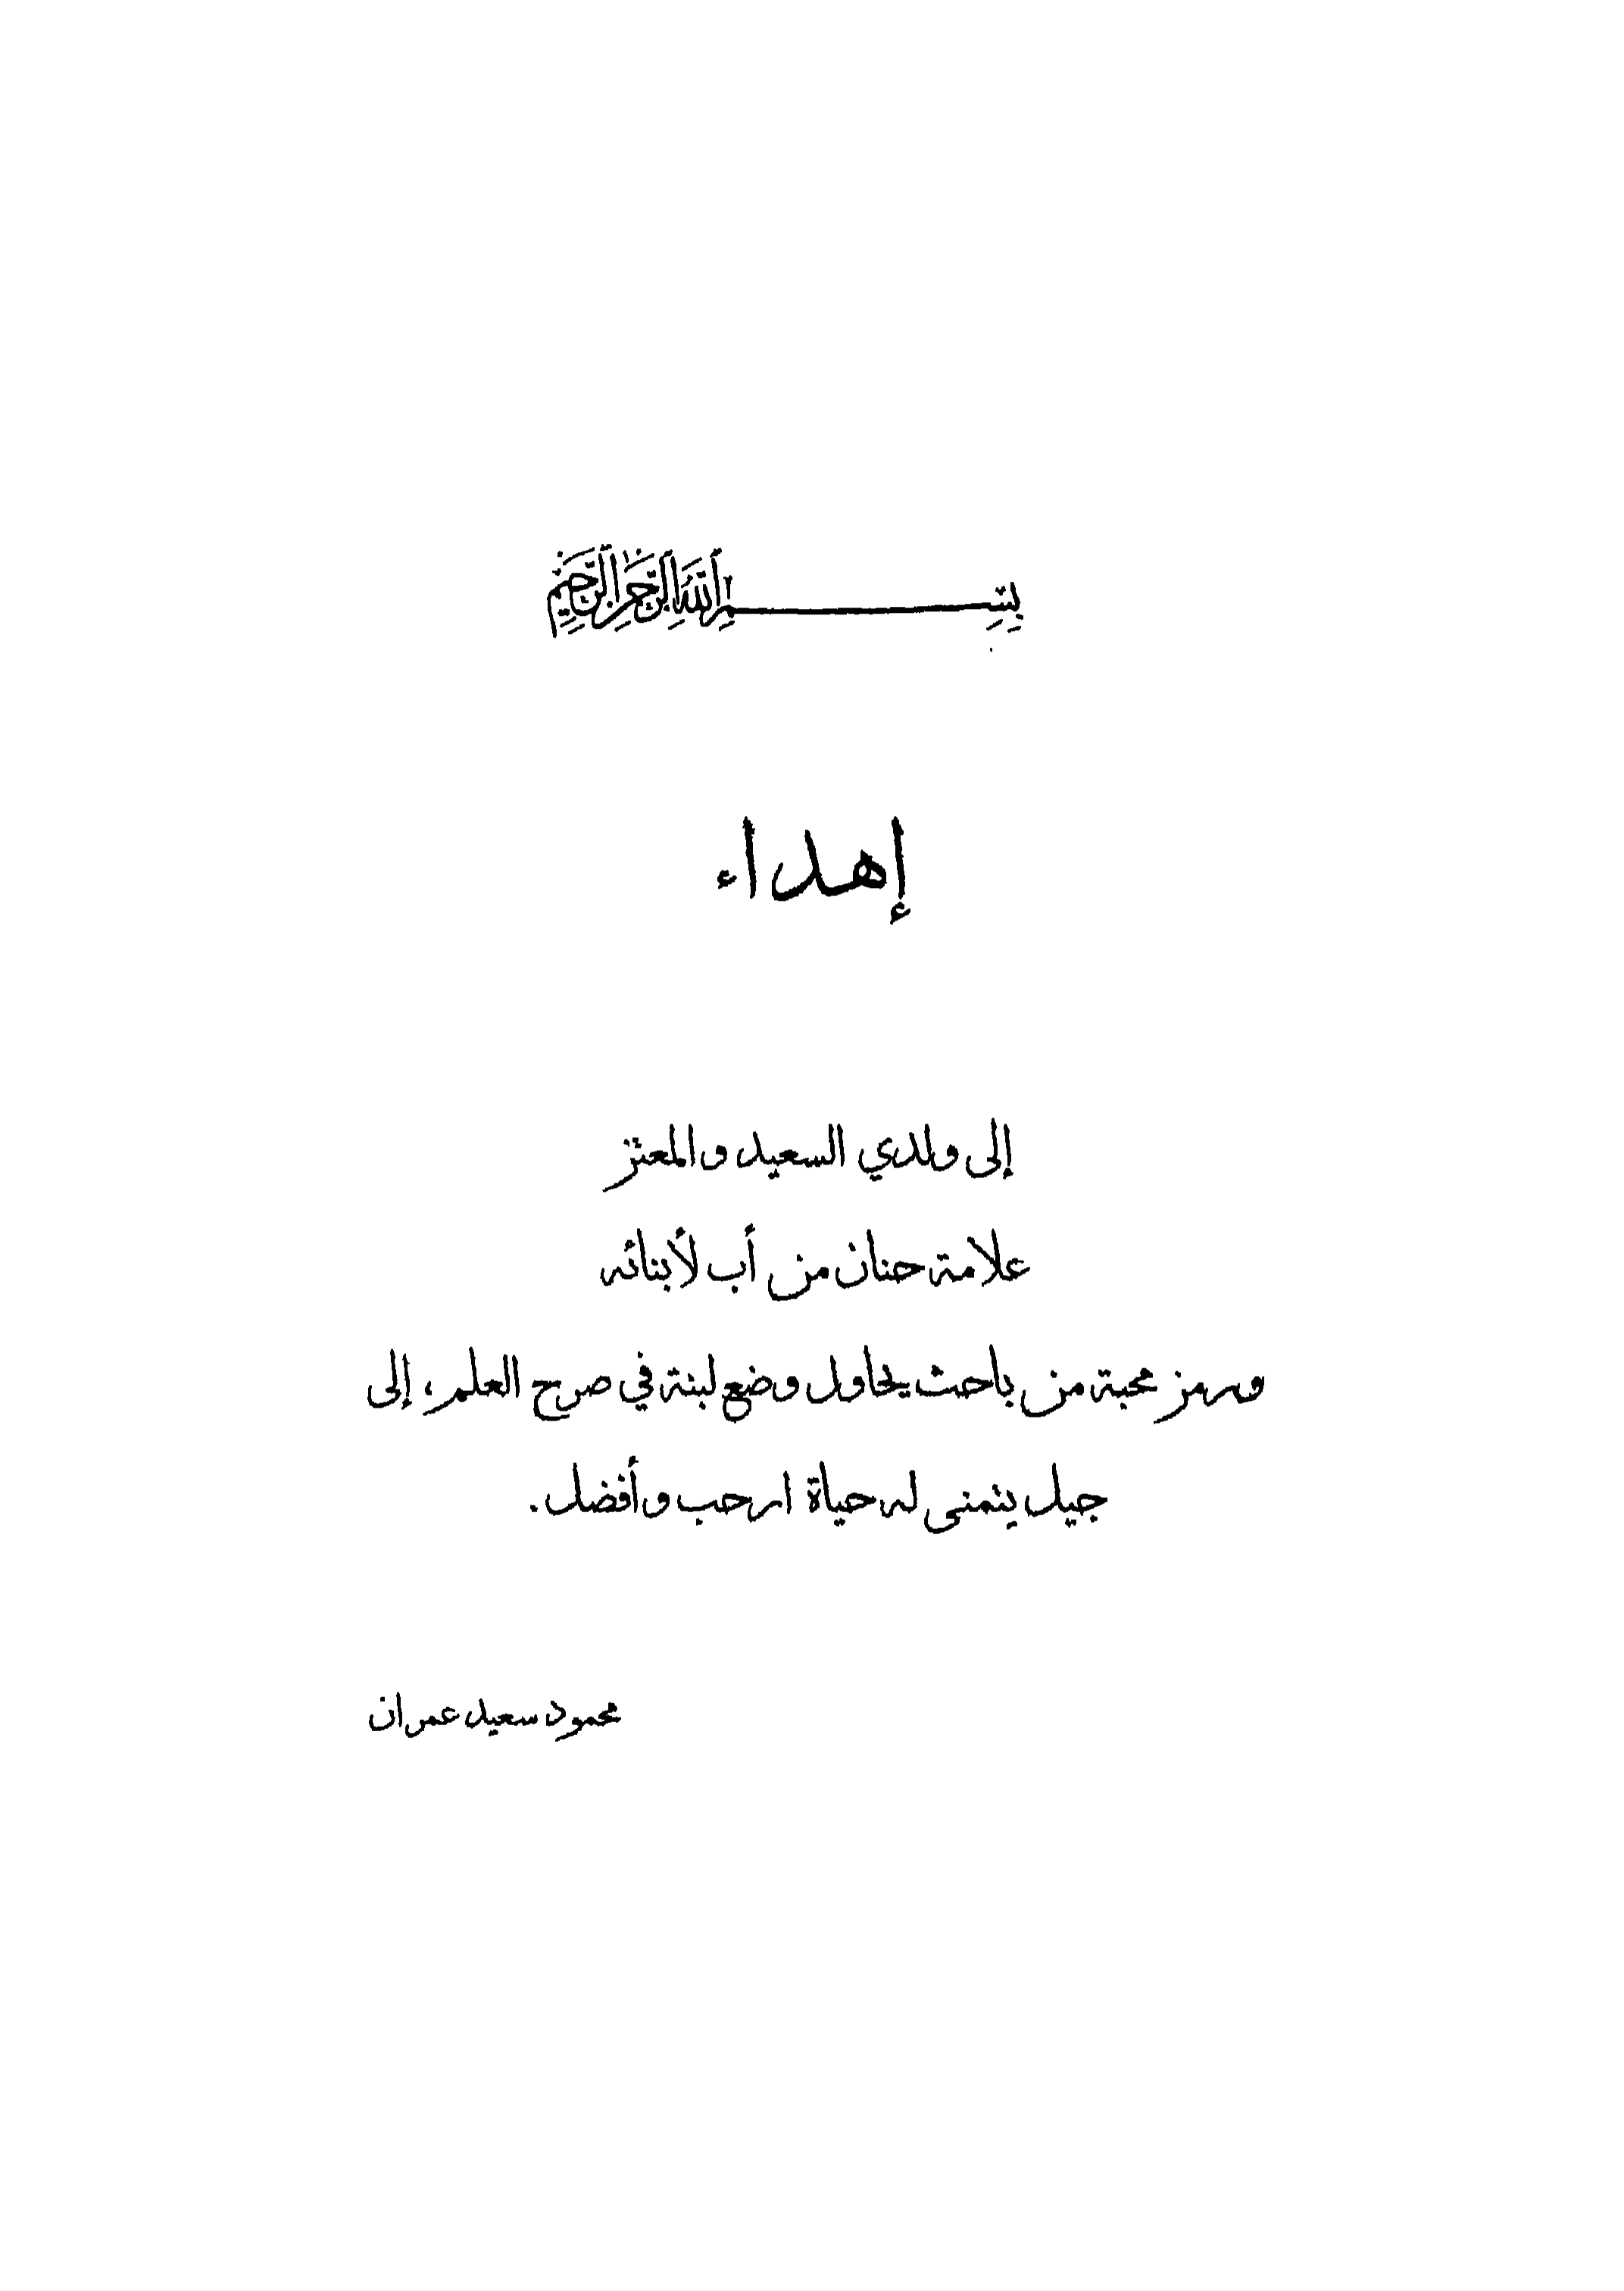 بِسْمِ اللَّهِ الرَّحْمَٰنِ الرَّحِيمِ
إهداء
إلى ولدي السعيد والمعتز
علامة حنان من أب لأبنائه
ورمز محبة من باحث يحاول وضع لبنة في صرح العلم، إلى
جيل يتمنى له حياة ارحب وأفضل.
محمود سعيد عمران